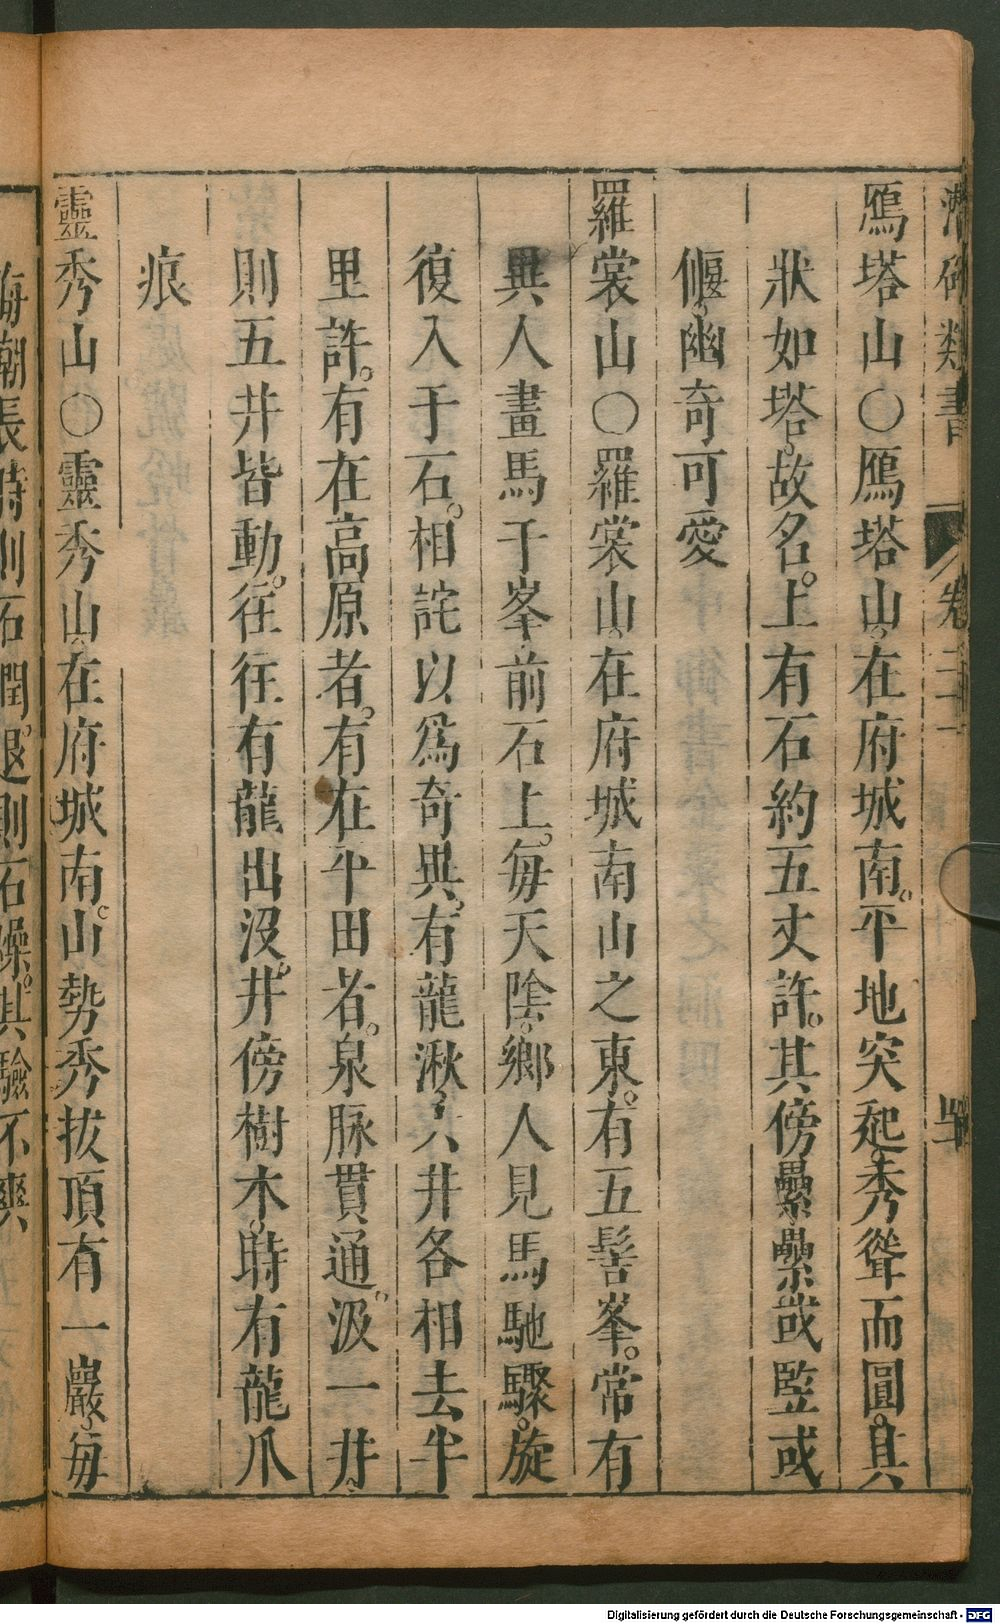 類書 卷二十一
鴈塔山○鴈塔山在府城南。平地突起。秀聳而圓。具
狀如塔。故名。上有石約五丈許。其傍纍纍或竪或
偃。幽奇可愛
羅裳山○羅裳山。在府城南山之東。有五髻峯。常有
異人畫馬于峯前石上。每天陰。鄉人見馬馳驟。旋
復入于石。相詫以爲奇異。有龍湫。六井各相去半
里許。有在高原者。有在平田者。泉脉貫通。汲一井
則五井皆動。徃徃有龍出没。井傍樹木。時有龍爪
痕
靈秀山○靈秀山。在府城南。山勢秀拔頂有一巖。每
海潮長時則石潤。退則石燥。其驗不爽
Digitalisierung gefördert durch die Deutsche Forschungsgemeinschaft - DFG